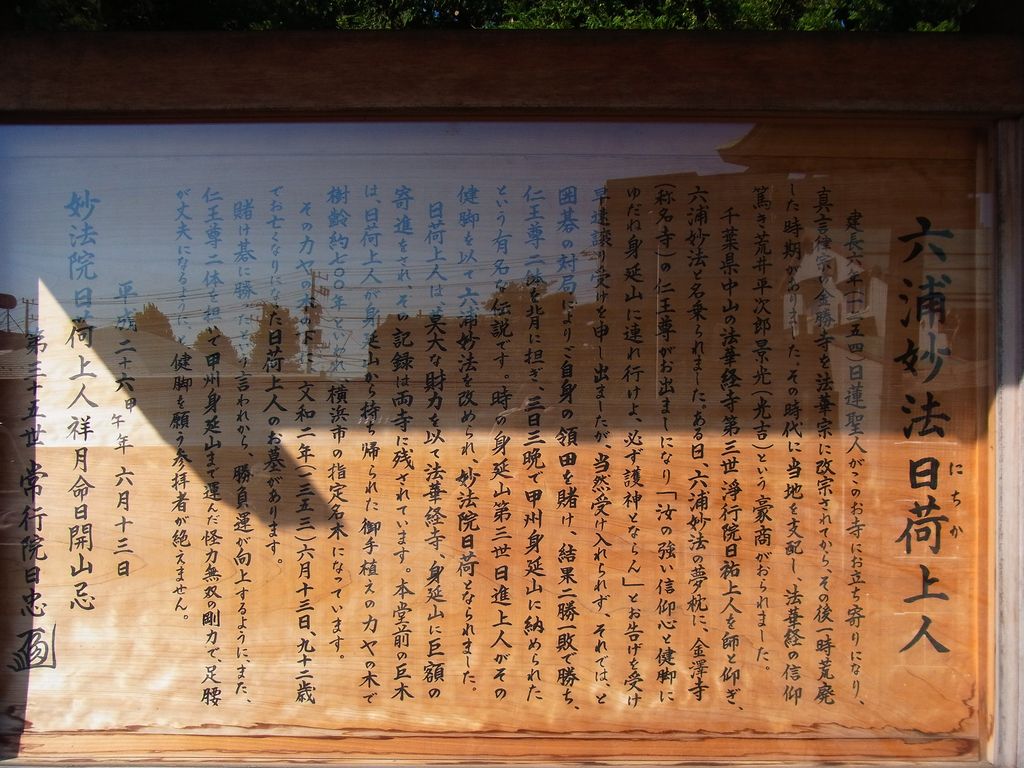 六浦妙法日荷上人
にちか
建長六年(一二五四)日蓮聖人がこのお寺にお立ち寄りになり、
真言律宗の金勝寺を法華宗に改宗されてから、その後一時荒廃
した時期がありました。その時代に当地を支配し、法華経の信仰
篤き荒井平次郎景光(光吉)という豪商がおられました。
千葉県中山の法華経寺第三世浄行院日祐上人を師と仰ぎ、
六浦妙法と名乗られました。ある日、六浦妙法の夢枕に、金澤寺
(称名寺)の仁王尊がお出ましになり「汝の強い信仰心と健脚に
ゆだね身延山に連れ行けよ、必ず護神とならん」とお告げを受け
早速譲り受けを申し出ましたが、当然受け入れられず、それでは、と
囲碁の対局によりご自身の領田を賭け、結果二勝一敗で勝ち、
仁王尊二体を背に担ぎ、三日三晩で甲州身延山に納められた
という有名な伝説です。時の身延山第三世日進上人がその
健脚を以て六浦妙法を改められ、妙法院日荷となられました。
日荷上人は、莫大な財力を以て法華経寺、身延山に巨額の
寄進をされ、その記録は両寺に残されています。本堂前の巨木
は、日荷上人が身延山から持ち帰られた御手植えのカヤの木で
樹齢約七〇〇年といわれ、横浜市の指定名木になっています。
そのカヤの木の下に、文和二年(一三五三)六月十三日、九十二歳
でお亡くなりになった日荷上人のお墓があります。
賭け碁に勝ったという言われから、勝負運が向上するようにまた、
仁王尊二体を担いで甲州身延山まで運んだ怪力無双の剛力で、足腰
が丈夫になるように、健脚を願う参拝者が絶えません。
平成二十六甲午年 六月十三日
妙法院日荷上人祥月命日開山忌
第三十五世 常行院日忠